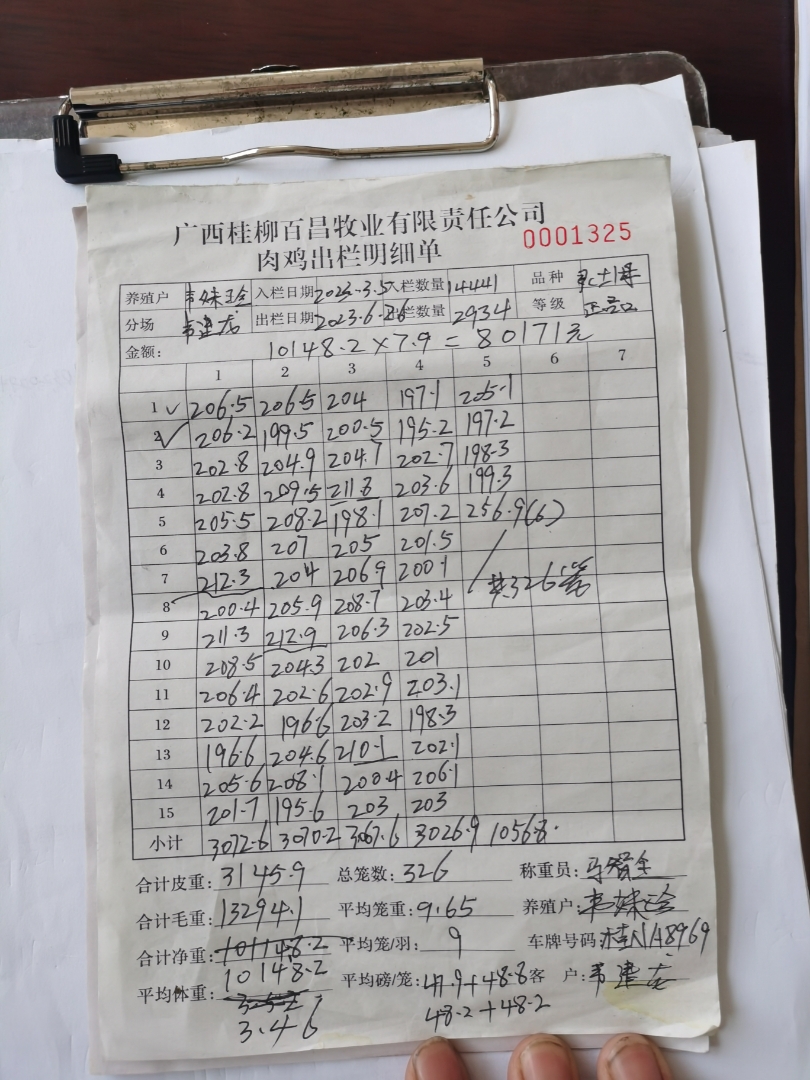 广西桂柳百昌牧业有限责任公司
肉鸡出栏明细单 0001325
养殖户 韦妹珍 入栏日期 2023.3.5 入栏数量 14441 品种
分场 韦建 出栏日期 2023.6.26 出栏数量 2934 等级 正品
金额: 10148.2×7.9=80171元
1 2 3 4 5 6 7
1 ✓ 206.5 206.5 204 197.1 205.1
2 ✓ 206.2 199.5 200.5 195.2 197.2
3 202.8 204.9 204.7 202.7 198.3
4 202.8 209.5 211.3 203.6 199.3
5 205.5 208.2 198.1 207.2 256.9(6)
6 203.8 207 205 201.5
7 212.3 204 206.9 200.1 共326笼
8 200.4 205.9 208.7 203.4
9 211.3 212.9 206.3 202.5
10 208.5 204.3 202 201
11 206.4 202.6 202.9 203.1
12 202.2 196.6 203.2 198.3
13 196.6 204.6 210.1 202.1
14 205.6 208.1 200.4 206.1
15 201.7 195.6 203 203
小计 3072.6 3070.2 3067.6 3026.9 1056.8
合计皮重: 3145.9 总笼数: 326 称重员:
合计毛重: 13294.1 平均笼重: 9.65 养殖户: 韦妹珍
合计净重: 10148.2 平均笼/羽: 9 车牌号码: 桂NA8969
10148.2
平均体重: 平均磅/笼: 47.9+48.8 客 户: 韦建
3.46 48.2+48.2